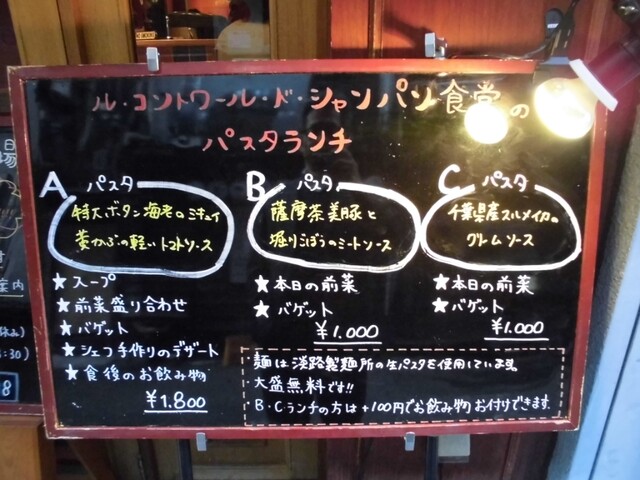 ル・コントワール・ド・シャンパン食堂の
パスタランチ
A パスタ
特大ボタン海老のミキュイ
黄かぶの軽いトマトソース
★スープ
★前菜盛り合わせ
★バゲット
★シェフ手作りのデザート
★食後のお飲み物
¥1.800
B パスタ
薩摩茶美豚と
堀りごぼうのミートソース
★本日の前菜
★バゲット
¥1.000
C パスタ
千葉県産スルメイカの
クリームソース
★本日の前菜
★バゲット
¥1.000
麺は淡路製麺所の生パスタを使用しています。
大盛無料です!!
B・Cランチの方は+100円でお飲み物お付けできます。